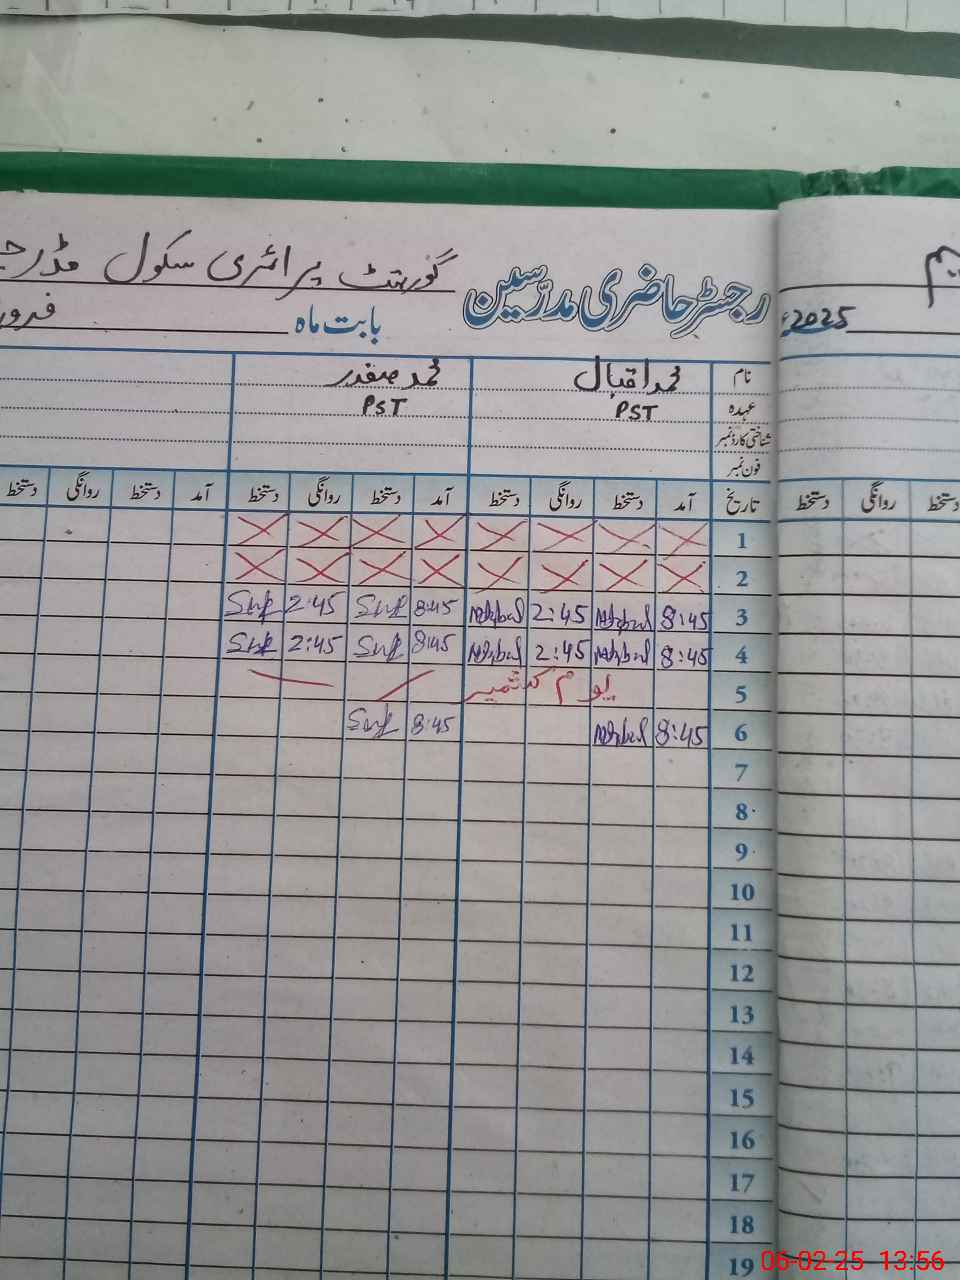 رجسٹر حاضری مدرّسین گورنمنٹ پرائمری سکول
بابت ماہ
2025ء
نام محمد اقبال محمد صفدر
عہدہ PST PST
شناختی کارڈ نمبر
فون نمبر
تاریخ آمد دستخط روانگی دستخط آمد دستخط روانگی دستخط آمد دستخط روانگی دستخط
دستخط روانگی دستخط
1
2
3 8:45 2:45 8:45 2:45
4 8:45 2:45 8:45 2:45
5 یوم کشمیر
6 8:45 8:45
7
8
9
10
11
12
13
14
15
16
17
18
19
06-02-25 13:56